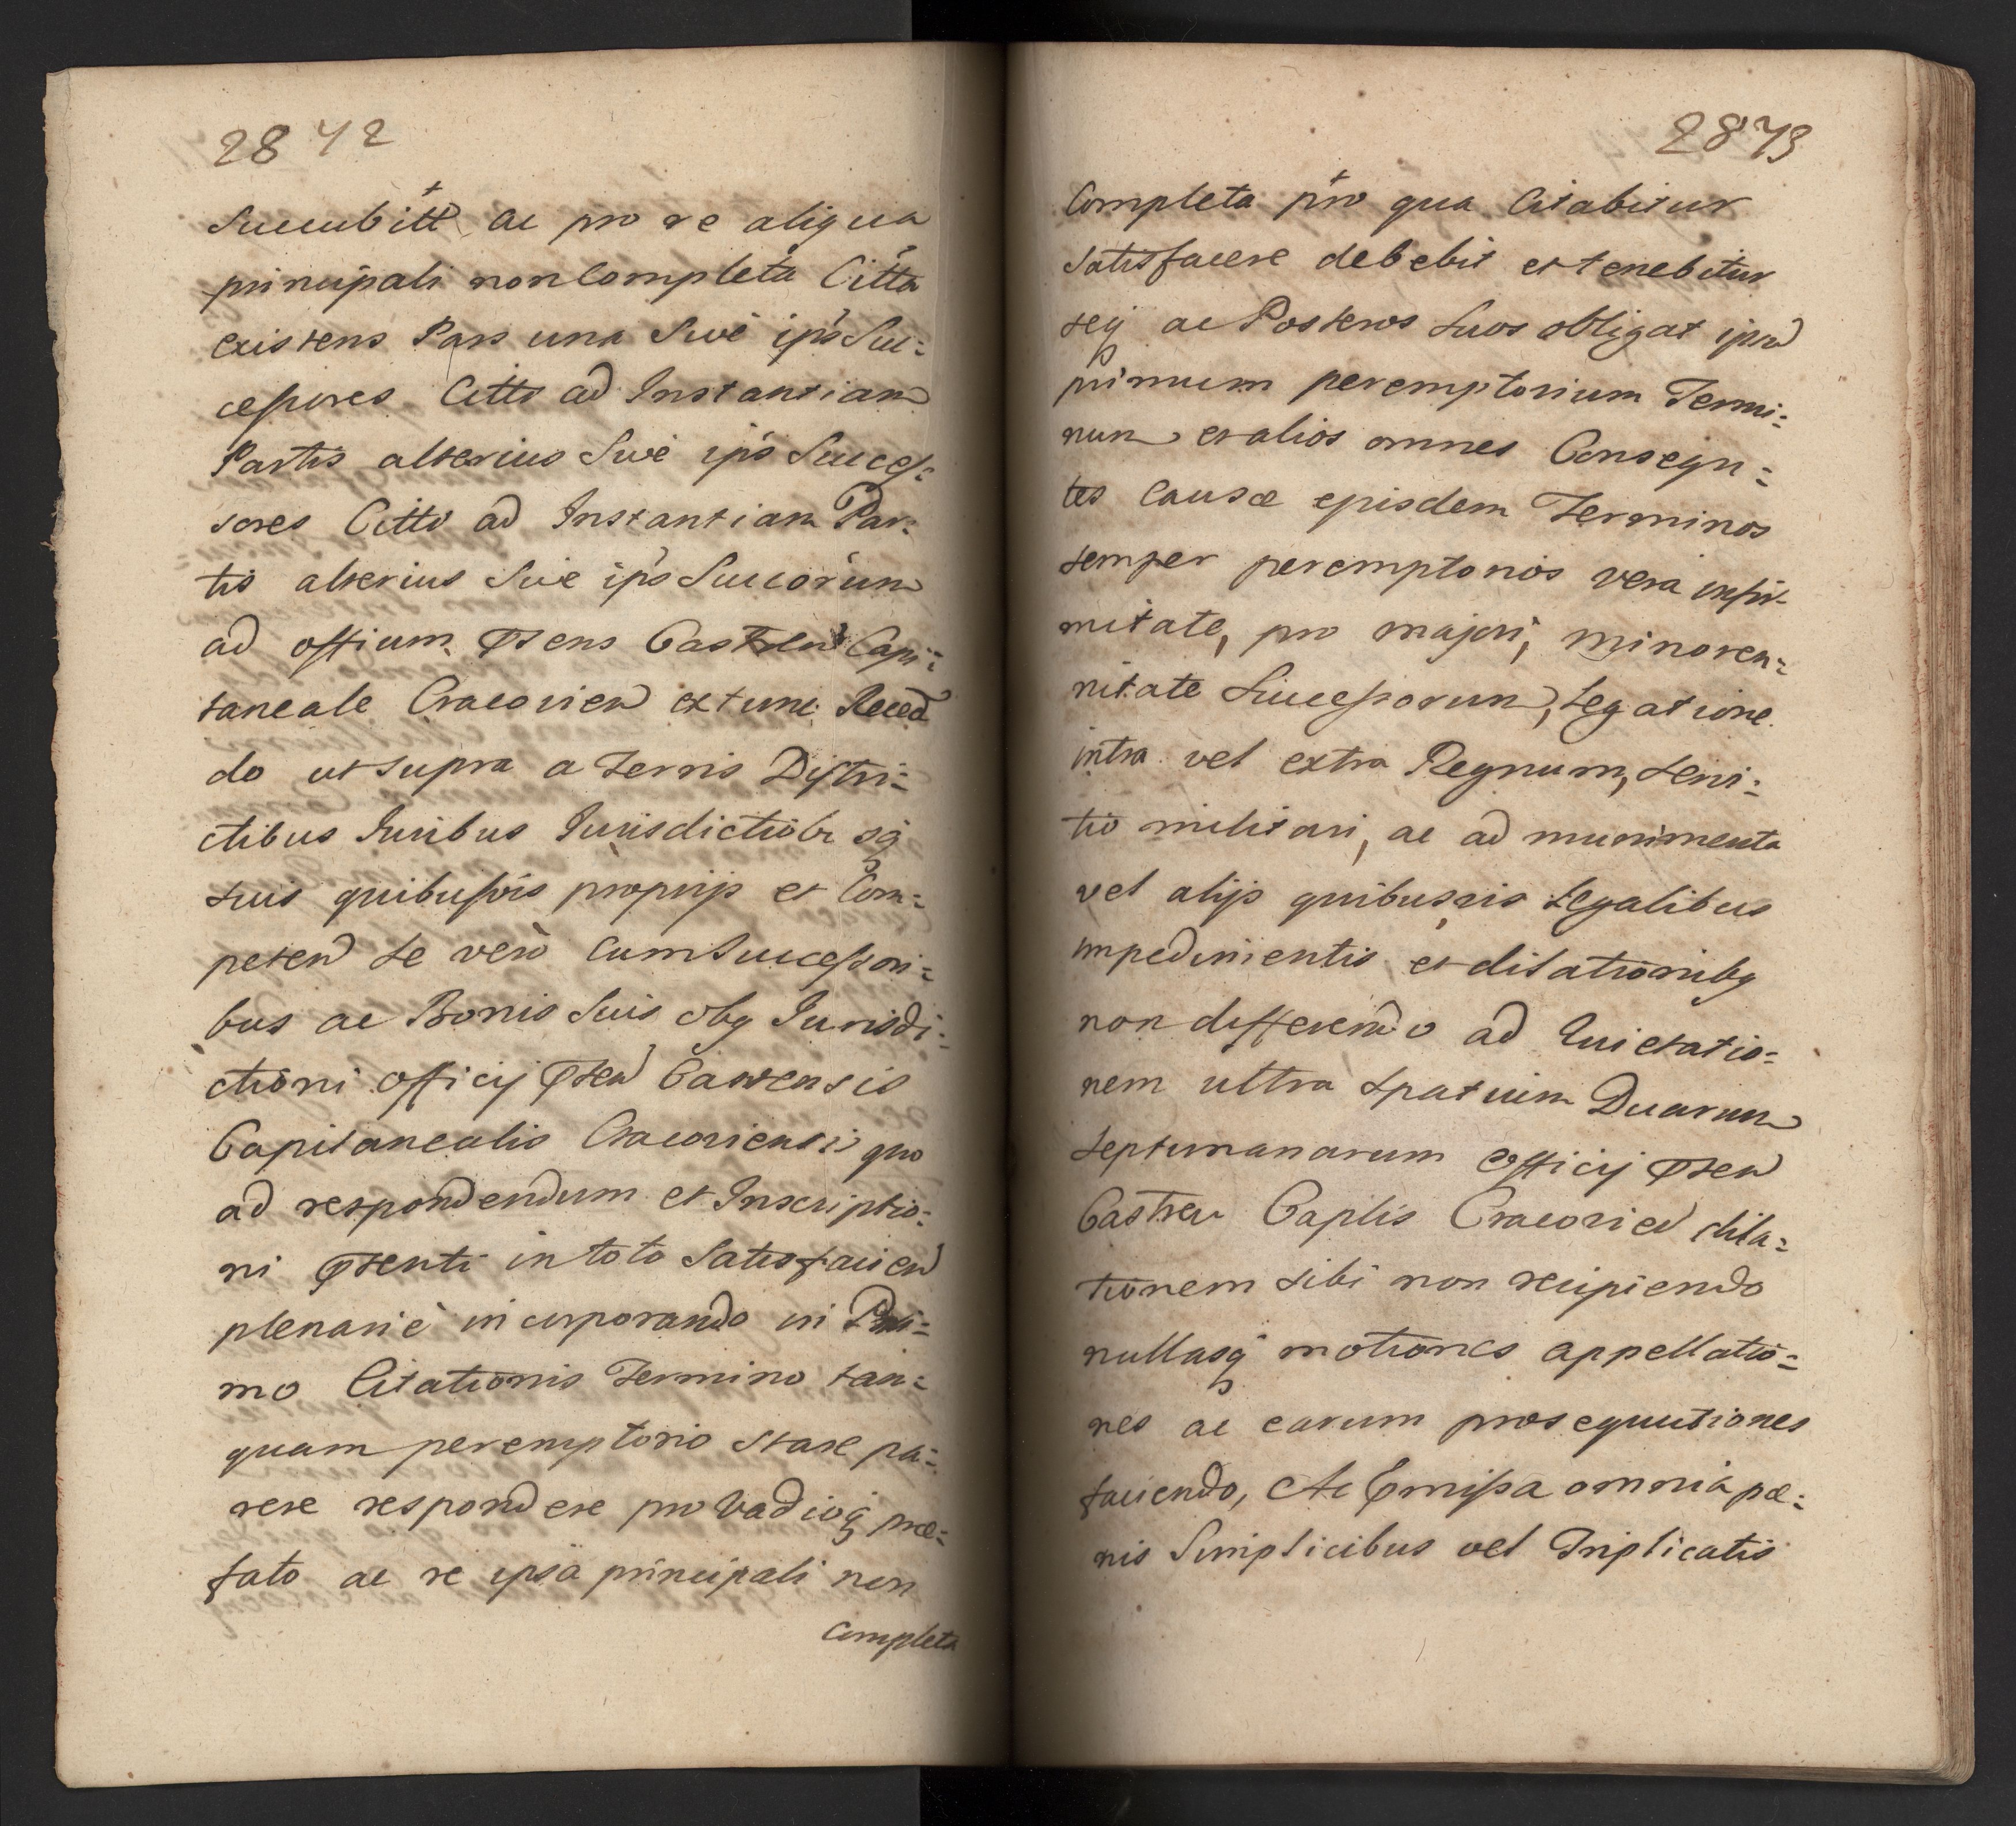 2842
Succubitt ac pro re aliqua
principali non Completa Citta
existens Pars una Sive ips Suc=
cessores Citto ad Instantiam
Partis alterius Sive ips Succes=
sores Citto ad Instantiam Par=
tis alterius Sive ips Succorum
ad offium Psens Castren Capi=
taneale Cracovien extunc Reced
do ut supra a Terris Distri=
ctibus Iuribus Iurisdictiobr sq
suis quibusvis proprijs et Com=
peten se vero cum Successori=
bus ac Bonis Suis obq Iurisdi=
ctioni officij Psen Castrensis
Capitanealis Cracoviensis quo
ad respondendum et Inscriptio=
ni Psenti in toto Satisfacien
plenarie incorporando in Pri=
mo Citationis Termino tan=
quam peremptorio stare pa=
rere respondere pro Vadioq prae=
fato ac re ipsa principali non
Completa
2843
Completa pro qua Citabitur
satisfacere debebit et tenebitur
seq ac Posteros Suos obligat ipsu
primum peremptorium Termi=
num et alios omnes Consequ=
tes causae ejusdem Terminos
semper peremptorios vera infir
mitate, pro majori, minoren=
nitate Successorum, Legatione
intra vel extra Regnum, servi=
tio militari, ac ad munimenta
vel alijs quibusvis Legalibus
impedimentis et dilationibq
non differendo ad Quietatio=
nem ultra spatium Duarum
Septimanarum Officij Psen
Castren Caplis Cracovien dila=
tionem sibi non recipiendo
nullasq motiones appellatio=
nes ac earum prosequutiones
faciendo, Ac Pmissa omnia pae=
nis Simplicibus vel Triplicatis